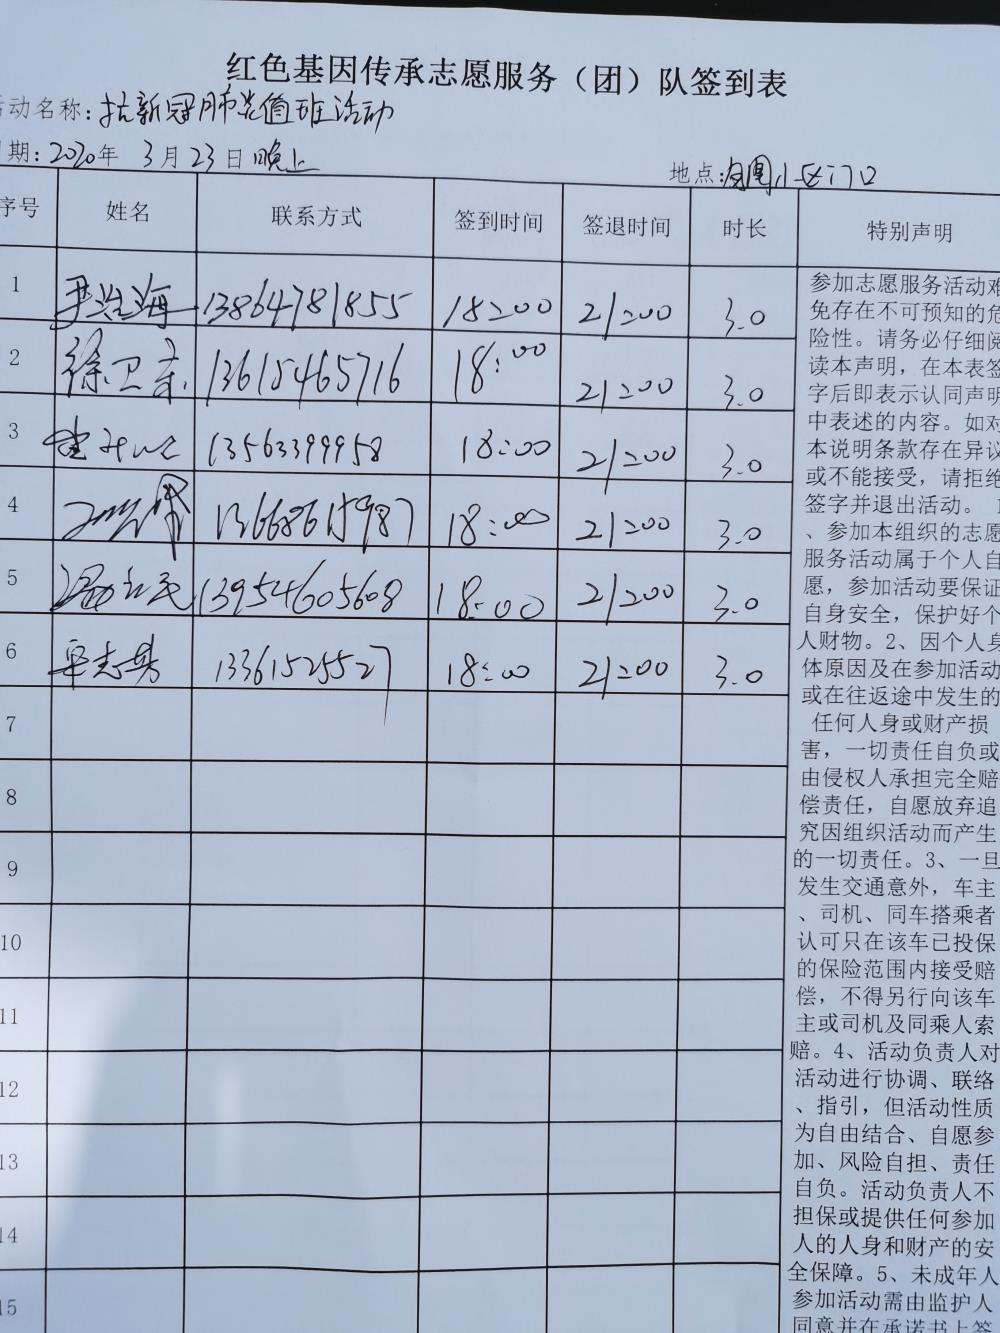 红色基因传承志愿服务（团）队签到表
活动名称：抗新冠肺炎值班活动
日期：2020年 3月23日晚上
地点：小区门口
序号 姓名 联系方式 签到时间 签退时间 时长 特别声明
1 尹浩海 13864781855 18:00 21:00 3.0
2 徐卫东 13615465716 18:00 21:00 3.0
3 13563399958 18:00 21:00 3.0
4 18:00 21:00 3.0
5 13954605608 18:00 21:00 3.0
6 13361525527 18:00 21:00 3.0
7
8
9
10
11
12
13
14
15
参加志愿服务活动难
免存在不可预知的危
险性。请务必仔细阅
读本声明，在本表签
字后即表示认同声明
中表述的内容。如对
本说明条款存在异议
或不能接受，请拒绝
签字并退出活动。 1
、参加本组织的志愿
服务活动属于个人自
愿，参加活动要保证
自身安全，保护好个
人财物。2、因个人身
体原因及在参加活动
或在往返途中发生的
任何人身或财产损
害，一切责任自负或
由侵权人承担完全赔
偿责任，自愿放弃追
究因组织活动而产生
的一切责任。3、一旦
发生交通意外，车主
、司机、同车搭乘者
认可只在该车已投保
的保险范围内接受赔
偿，不得另行向该车
主或司机及同乘人索
赔。4、活动负责人对
活动进行协调、联络
、指引，但活动性质
为自由结合、自愿参
加、风险自担、责任
自负。活动负责人不
担保或提供任何参加
人的人身和财产的安
全保障。5、未成年人
参加活动需由监护人
同意并在承诺书上签